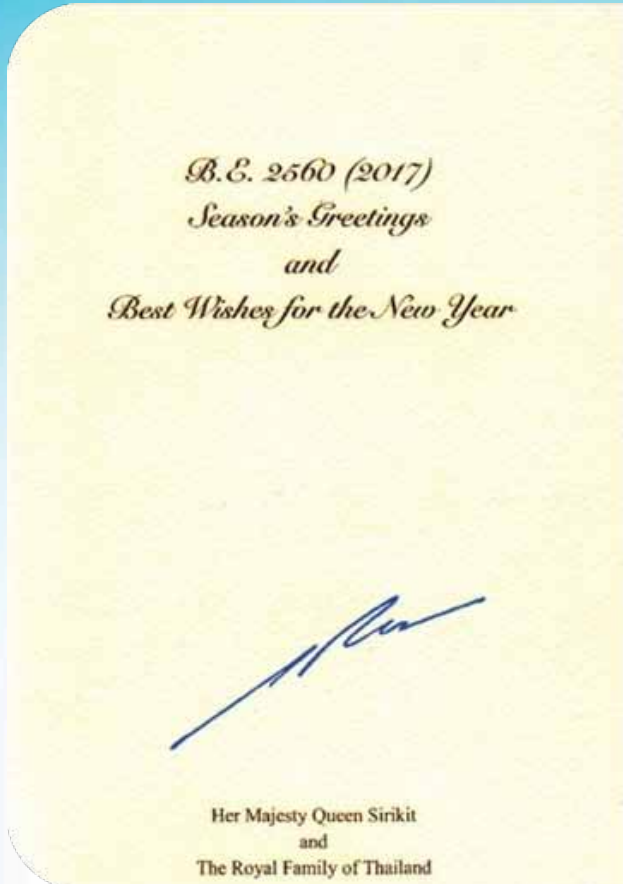 B.E. 2560 (2017)
Season's Greetings
and
Best Wishes for the New Year
Her Majesty Queen Sirikit
and
The Royal Family of Thailand